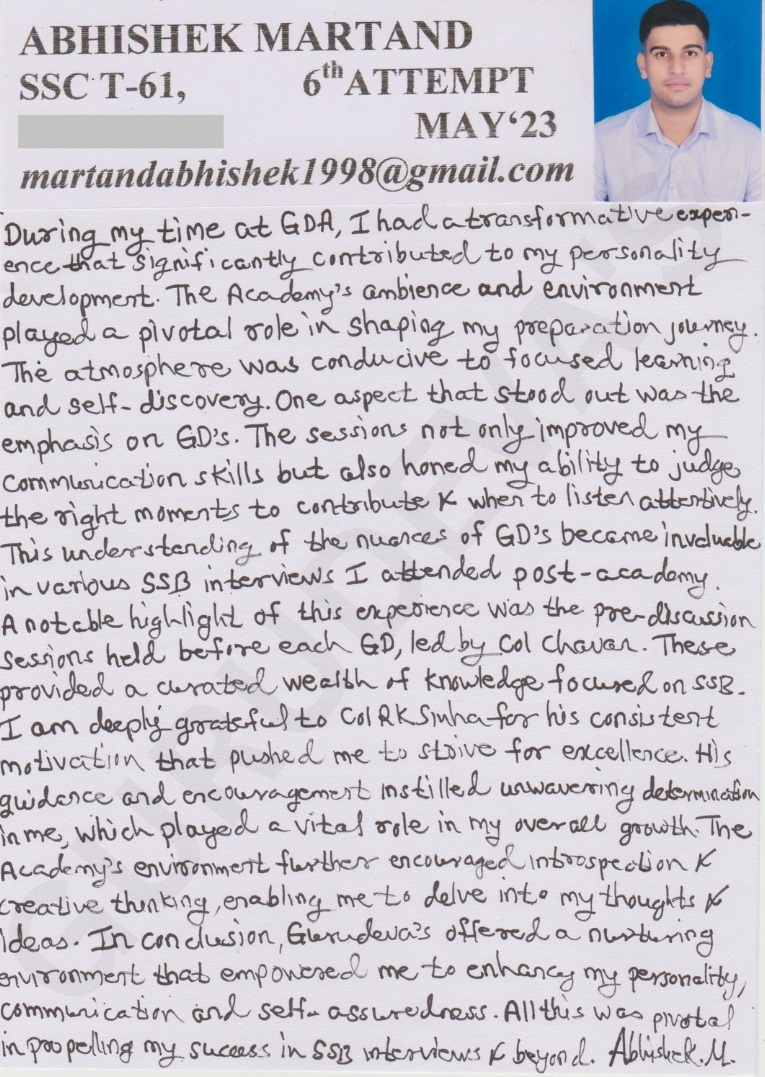 ABHISHEK MARTAND
SSC T-61, 6th ATTEMPT
MAY‘23
martandabhishek1998@gmail.com
During my time at GDA, I had a transformative experi-
ence that significantly contributed to my personality
development. The Academy's ambience and environment
played a pivotal role in shaping my preparation journey.
The atmosphere was conducive to focused learning
and self-discovery. One aspect that stood out was the
emphasis on GD's. The sessions not only improved my
communication skills but also honed my ability to judge
the right moments to contribute & when to listen attentively.
This understanding of the nuances of GD's became invaluable
in various SSB interviews I attended post-academy.
A notable highlight of this experience was the pre-discussion
sessions held before each GD, led by Col Chavan. These
provided a curated wealth of knowledge focused on SSB.
I am deeply grateful to Col RK Sinha for his consistent
motivation that pushed me to strive for excellence. His
guidance and encouragement instilled unwavering determination
in me, which played a vital role in my overall growth. The
Academy's environment further encouraged introspection &
creative thinking, enabling me to delve into my thoughts &
ideas. In conclusion, Gurudeva's offered a nurturing
environment that empowered me to enhancy my personality,
communication and self-assuredness. All this was pivotal
in propelling my success in SSB interviews & beyond. Abhishek.M.
GURUDEVA'S